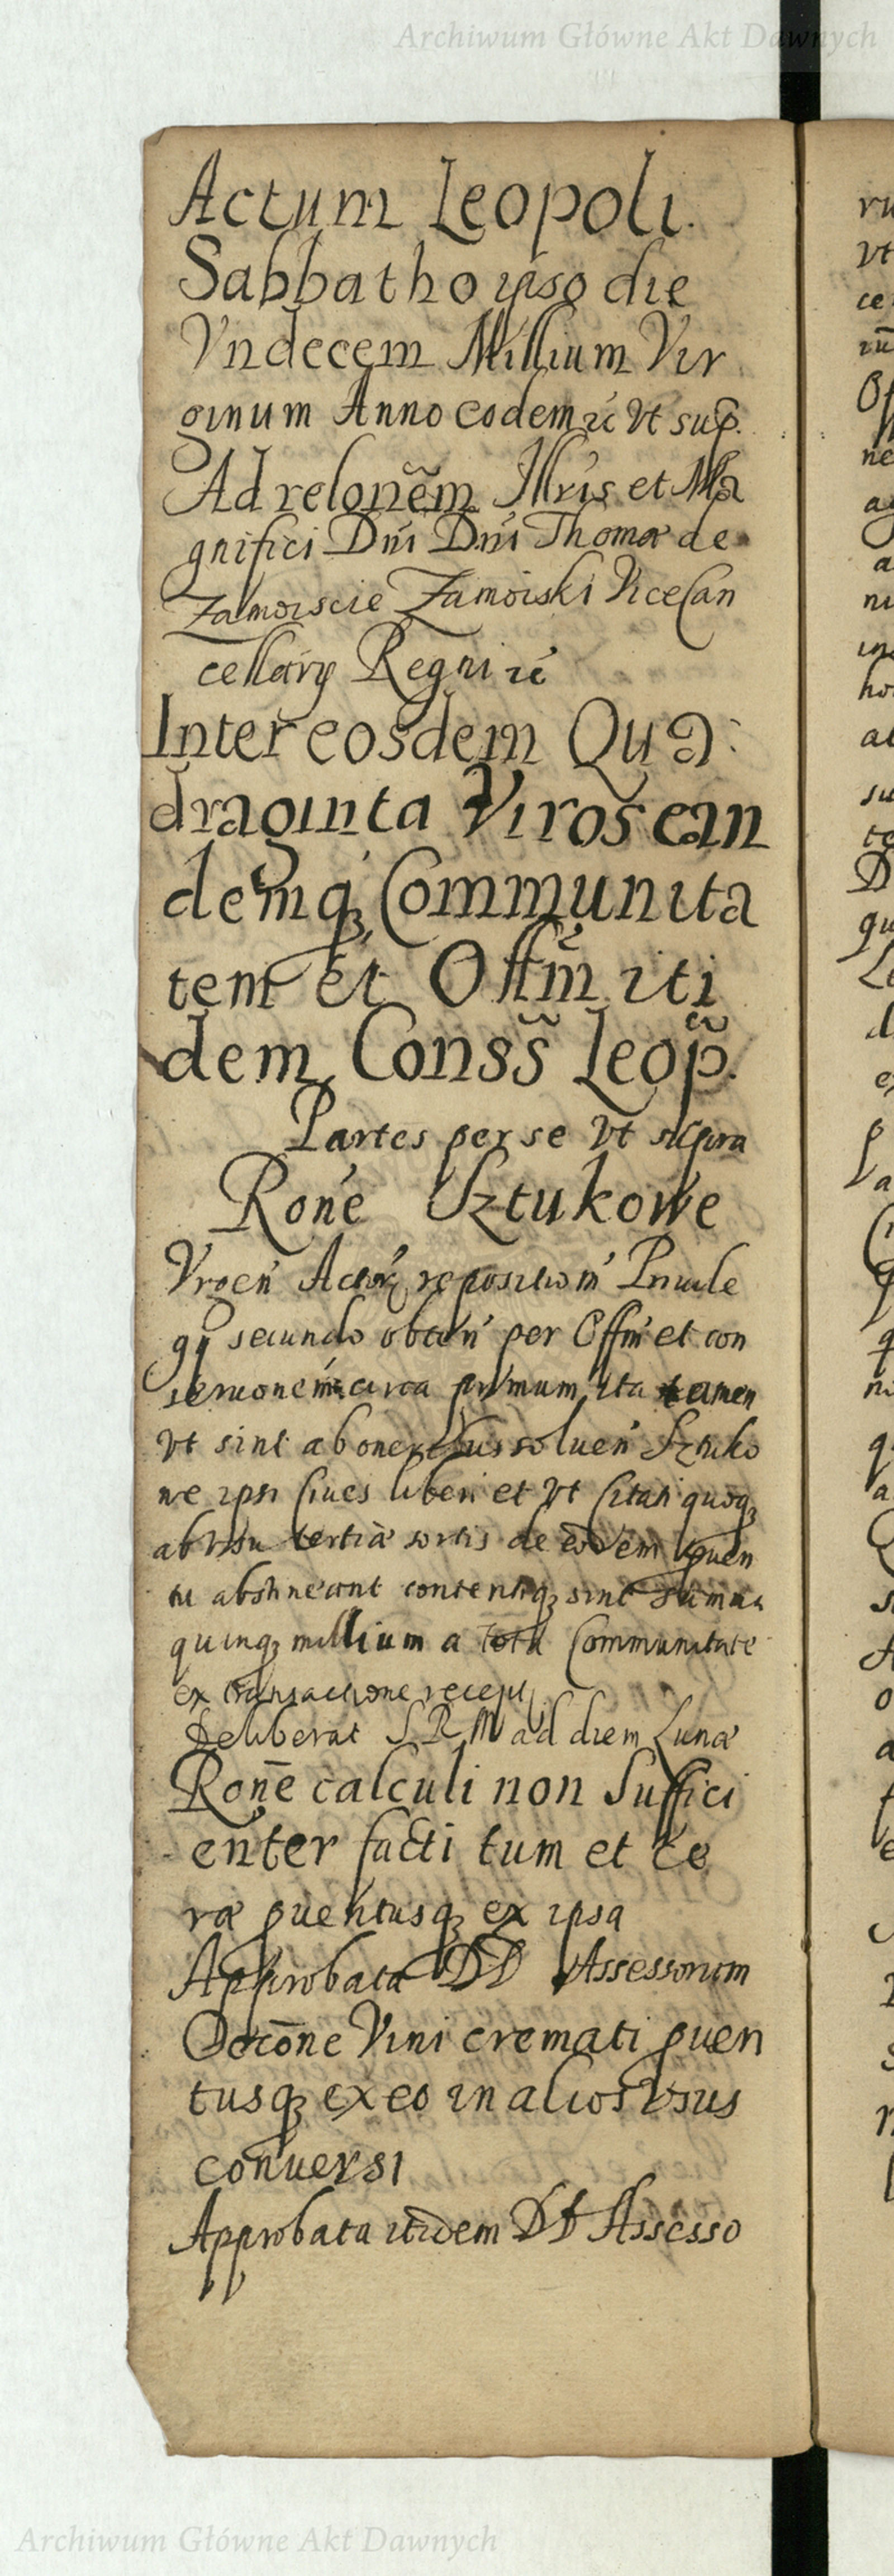 Archiwum Główne Akt Dawnych
Actum Leopoli.
Sabbatho ipso die
Vndecem Millium Vir
ginum Anno eodem rć Vt sup̃.
Ad relonẽm Illris et Ma
gnifici Dnī Dnī Thomæ de
Zamoiscie Zamoiski ViceCan
cellarij Regni rć
Inter eosdem Qua:
draginta Viros ean
demq; Communita
tem et Offm̃ iti
dem Conss̃ Leop̃.
Partes per se Vt supra
Rone Sztukowe
Vrgen Actor repositiom Priuile
gij secundo obten per Offm et con
seruonem circa primum, ita tamen
Vt sint ab oneribus soluen Sztuko
we ipsi Ciues liberi et Vt Citati quoq;
ab vsu tertiæ sortis de eodem puen
tu abstineant contentiq; sint summa
quinq; millium a tota Communitate
ex transactione recepti
Deliberat S R M ad diem Lunæ
Rone calculi non Suffici
enter facti tum et ce
ræ puentusq; ex ipsa
Approbata DD Assessorum
Vini cremati puen
tusq; ex eo in alios Vsus
conuersi
Approbata itidem DD Assesso
Archiwum Główne Akt Dawnych